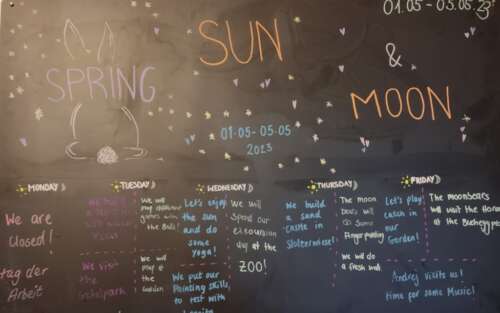 01.05 - 05.05.23
SUN
SPRING
&
MOON
01.05 - 05.05
2023
MONDAY
TUESDAY
WEDNESDAY
THURSDAY
FRIDAY
We are
closed!
Tag der
Arbeit
We visit
the
We will
play
games with
the Balls!
We will
play
the
Garden
Let's enjoy
the sun
and do
some
yoga!
We put our
Painting skills
to test with
We will
Spend our
excursion
day at the
ZOO!
We build
a sand
castle in
The moon
Bears will
do some
Fingerpainting
We will do
a fresh wall
Let's play
catch in
our
Garden!
The moonbears
will visit the
at the
Andrej visits us!
time for some Music!